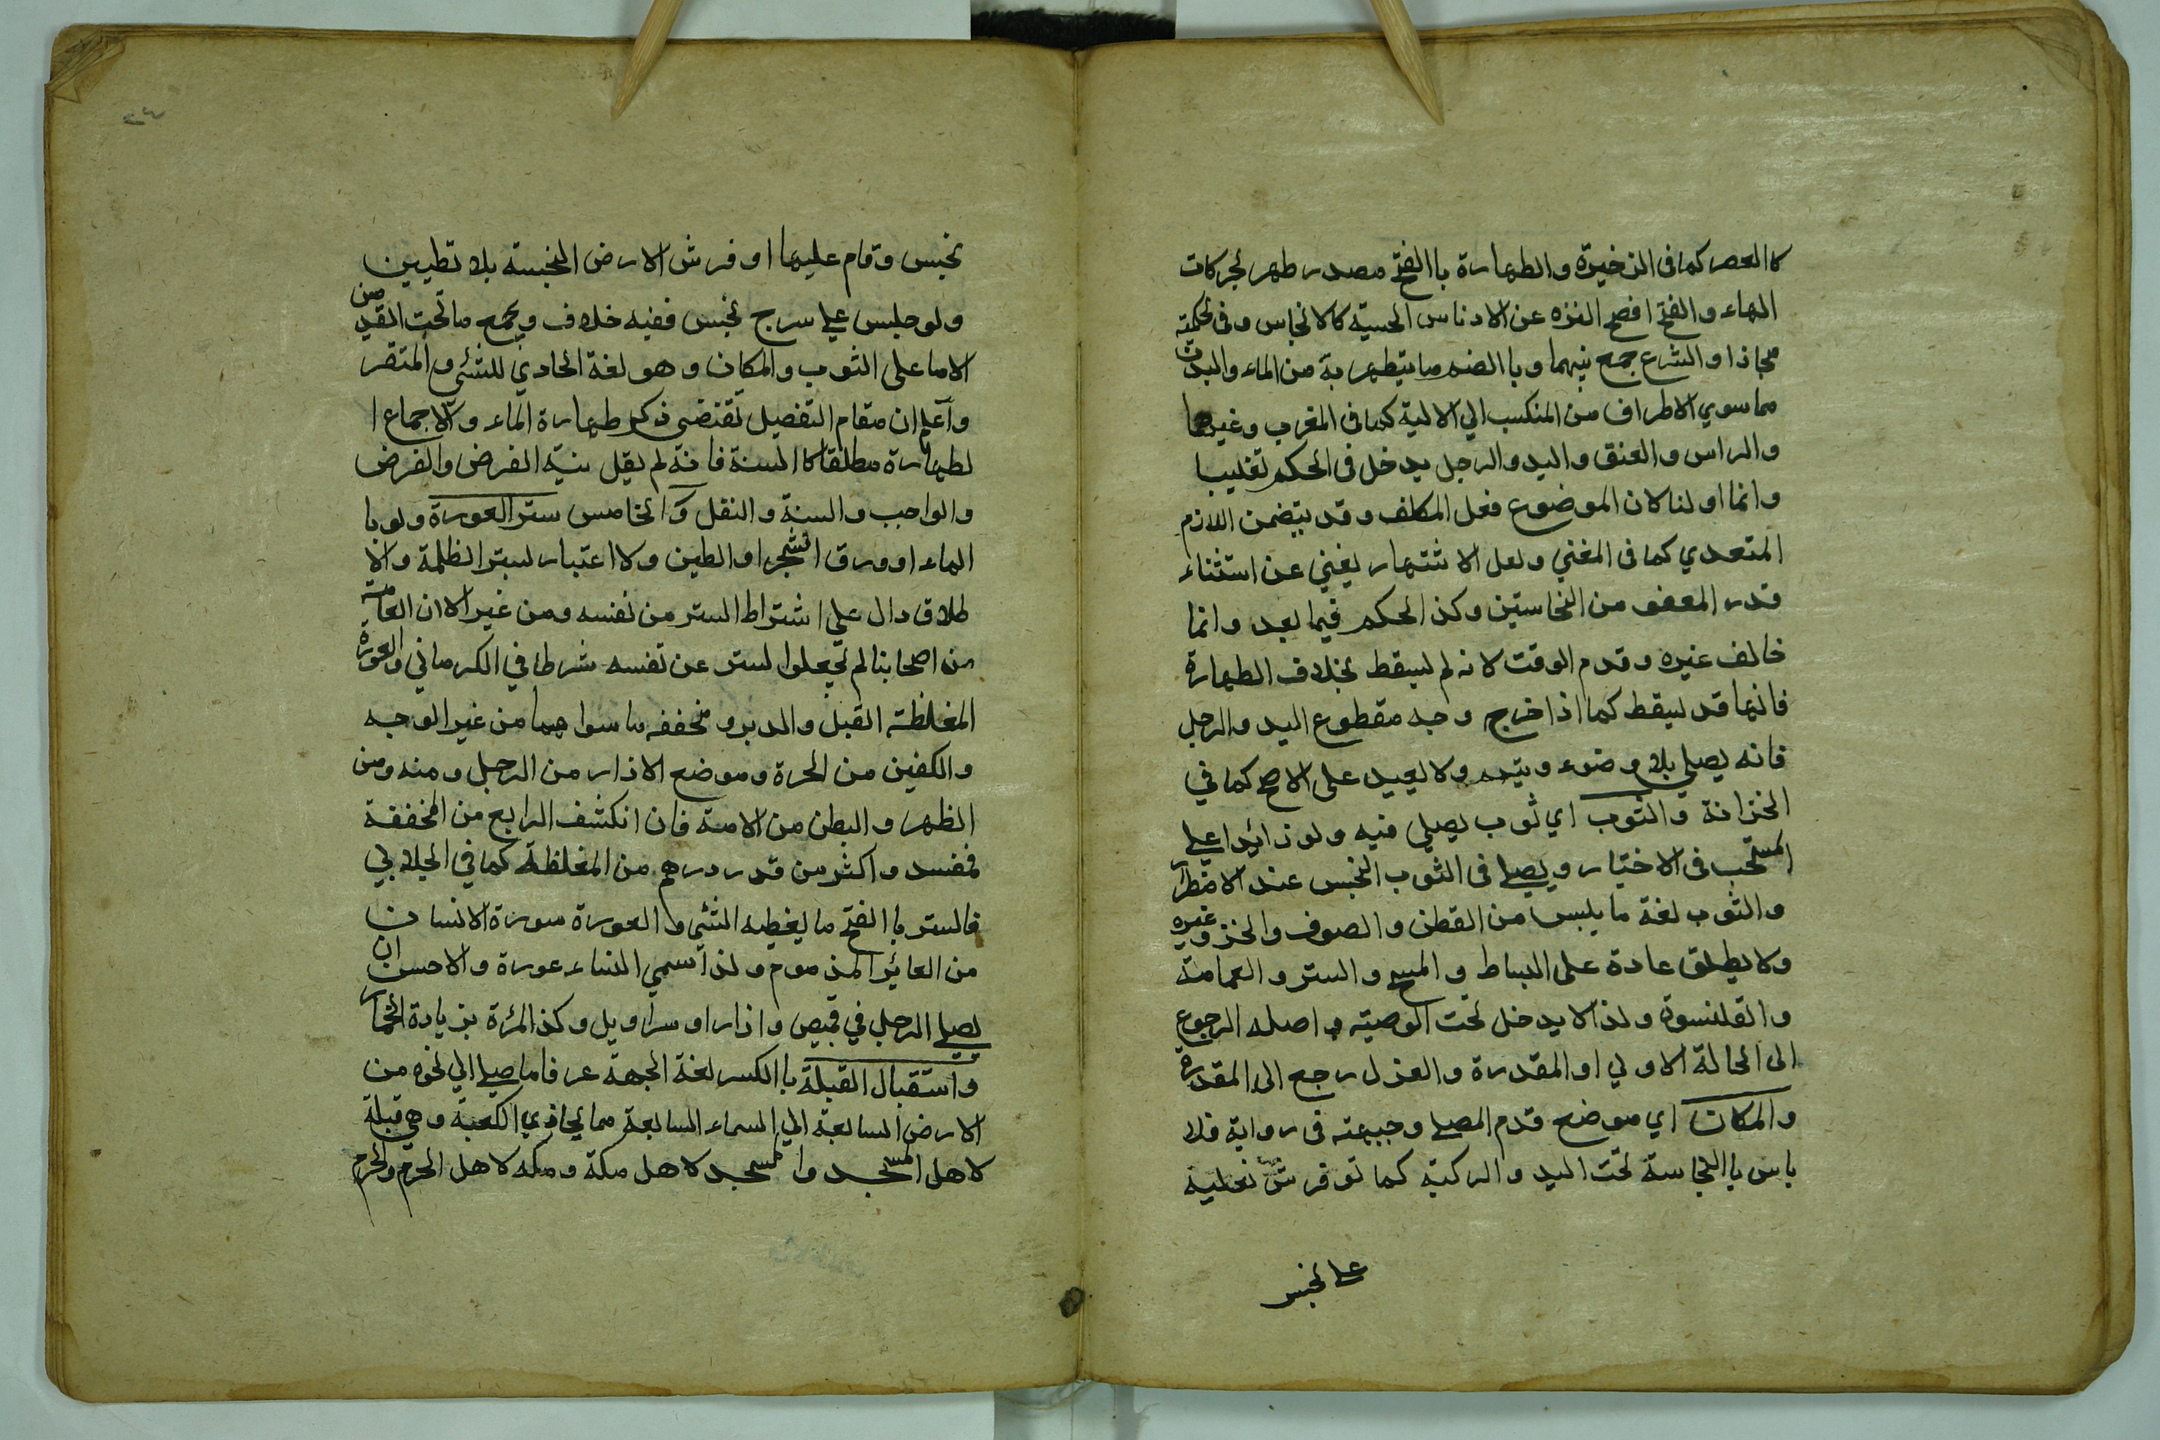 كا العصر كما فى الذخيرة والطهارة باالفتح مصدر طهر بحركات
الهاء والفتح افصح النزه عن الادناس الحسية كالانجاس وفى الحكمية
مجاذا والشرع جمع بينهما وباالضم ما يتطهر به من الماء والبدن
مما سوي الاطراف من المنكب الي الالية كما فى المغرب وغيرها
والراس والعنق واليد والرجل يدخل فى الحكم تغليبا
وانما اولنا كان الموضوع فعل المكلف وقد يتضمن اللازم
المتعدي كما فى المغني ولعل الاشتهار يغني عن استثناء
قدر المعفو من النجاستين وكذ الحكم فيما بعد وانما
خالف غيره وقدم الوقت لانه لم يسقط بخلاف الطهارة
فانها قد يسقط كما اذا خرج وجه مقطوع اليد والرجل
فانه يصلي بلا وضوء وتيمم ولا يعيد على الاصح كما في
الخزانة والثوب اي ثوب يصلي فيه ولو زائدا علي
المستحب فى الاختيار ويصلي فى الثوب النجس عند الاضطرار
والثوب لغة ما يلبس من القطن والصوف والخز وغيره
ولا يطلق عادة على البساط والمسح والستر والعمامة
والقلنسوة ولذا لا يدخل تحت الوصية واصله الرجوع
الى الحالة الاولي او المقدرة والغزل رجع الى المقدرة
والمكان اي موضع قدم المصلي وجبهته فى رواية فلا
باس باالنجاسة تحت اليد والركبة كما لو فرش نعليه
علي نجس
٢٤
نجس وقام عليها او فرش الارض النجسة بلا تطيين
ولو جلس علي سرج نجس ففيه خلاف ويجمع ما تحت القدمين
الاما على الثوب والمكان وهو لغة الحادي للشئ والمتقر
واعلم ان مقام التفصيل تقتضى ذكر طهارة الماء والاجماع ا
لطهارة مطلقا كالسنة فانه لم يقل بنية الفرض والفرض
والواجب والسنة والنفل والخامس ستر العورة ولو با
الماء او ورق الشجرا والطين ولا اعتبار لستر الظلمة والا
طلاق دال علي اشتراط الستر من نفسه ومن غير الا ان العامة
من اصحابنا لم يجعلوا لستر عن نفسه شرطا في الكرماني والعورة
المغلظة القبل والدبر ومخففه ما سواهما من غير الوجه
والكفين من الحرة وموضع الاذار من الرجل ومنه ومن
الظهر والبطن من الامة فان انكشف الرابع من المخففة
فمفسد واكثر من قدر درهم من المغلظة كما في الجلابي
فالستر باالفتح ما يغطيه الشئ والعورة سورة الانسان
من العائر المذموم ولذا سمي النساء عورة والاحسن ان
يصلي الرجل في قميص واذار او سراويل وكذ المرٔة بزيادة الخمار
واستقبال القبلة باالكسر لغة الجهة عرفا ما صلي الي نحوه من
الارض السابعة الي السماء السابعة مما يحاذي الكعبة وهي قبلة
لاهل المسجد والمسجد لاهل مكة ومكه لاهل الحرم والحرم